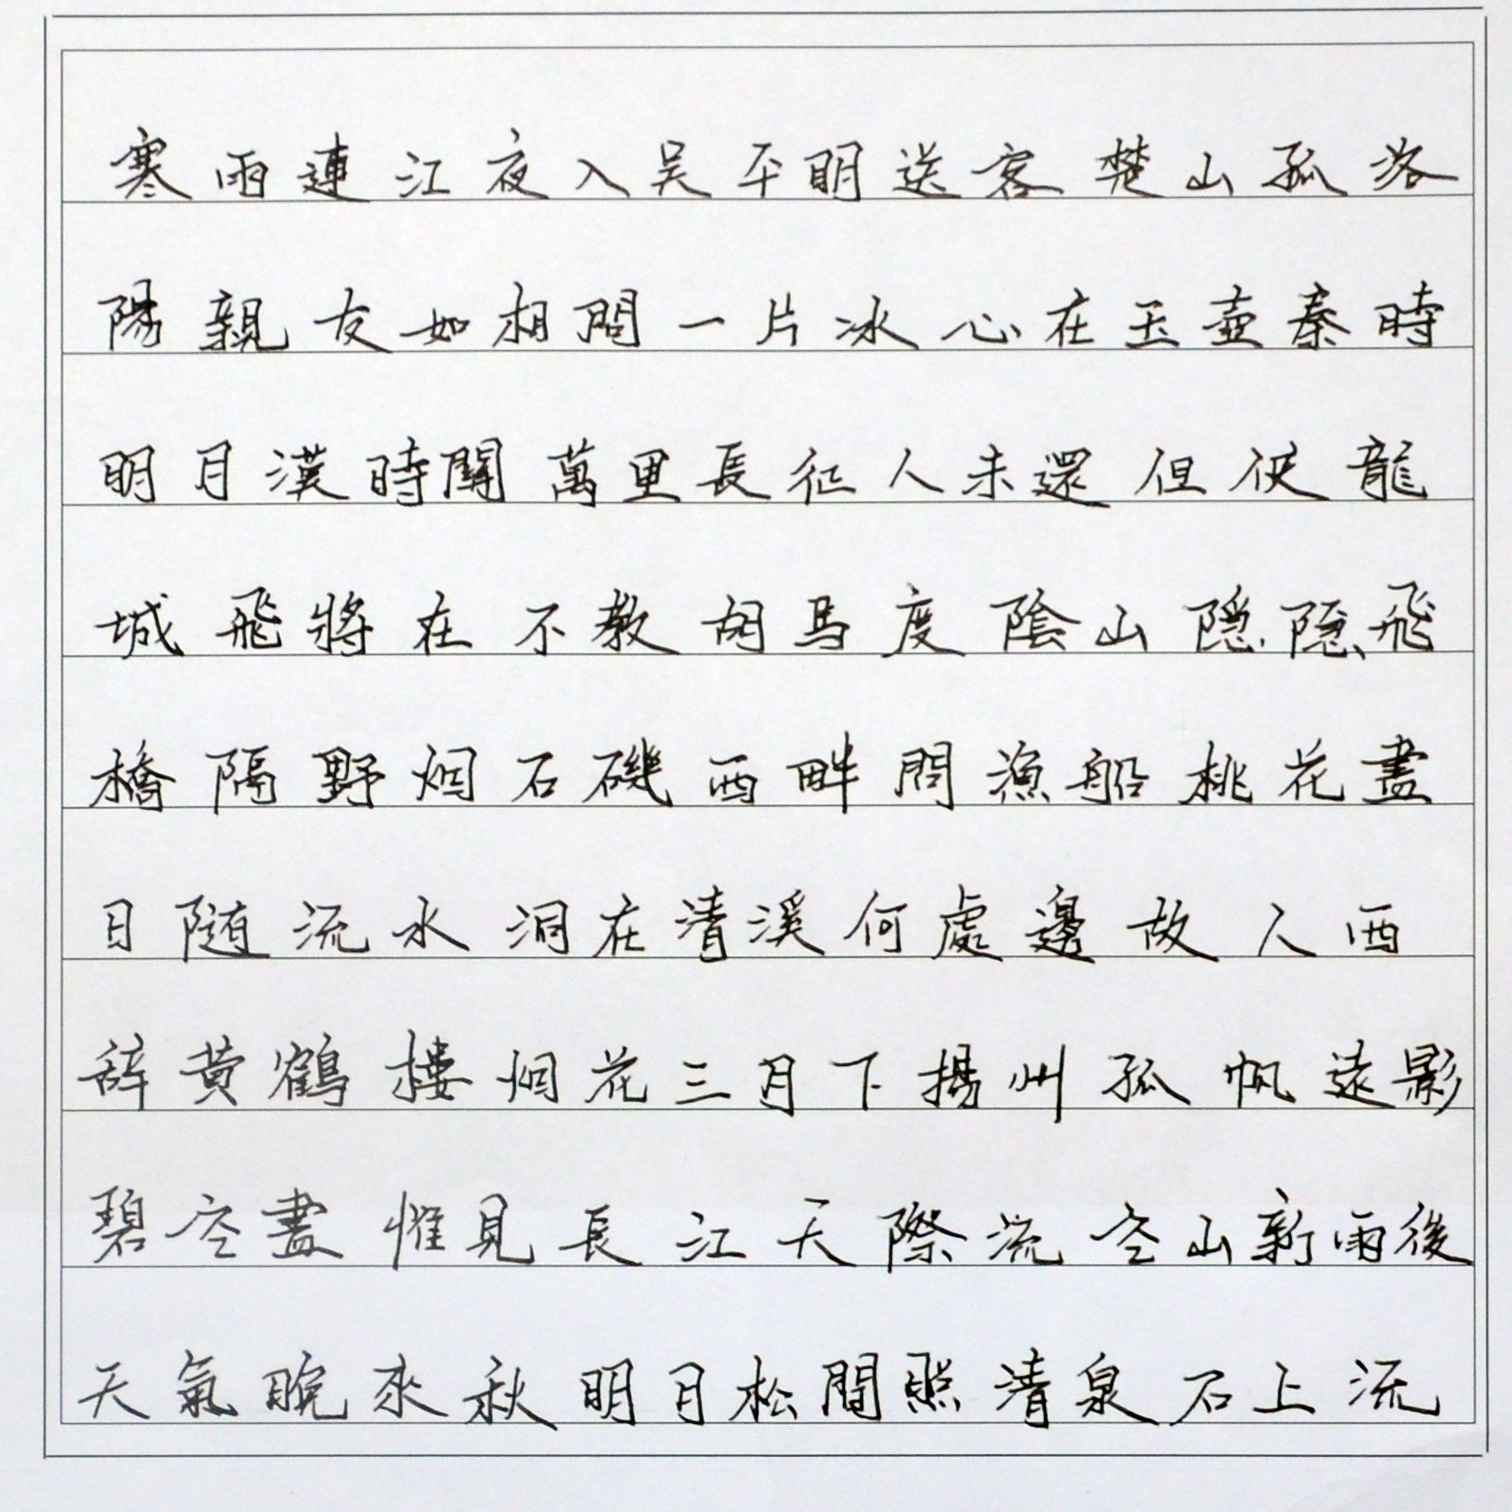 寒雨連江夜入吴平明送客楚山孤洛
陽親友如相問一片冰心在玉壺秦時
明月漢時關萬里長征人未還但使龍
城飛將在不教胡馬度陰山隱隱飛
橋隔野烟石磯西畔問漁船桃花盡
日随流水洞在清溪何處邊故人西
辞黄鶴樓烟花三月下揚州孤帆遠影
碧空盡惟見長江天際流空山新雨後
天氣晚來秋明月松間照清泉石上流